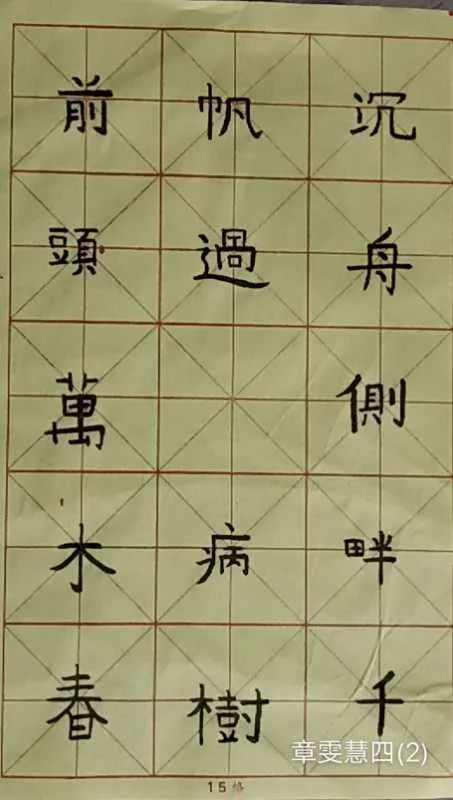 沉舟側畔千
帆過病樹
前頭萬木春
15格
章雯慧四(2)